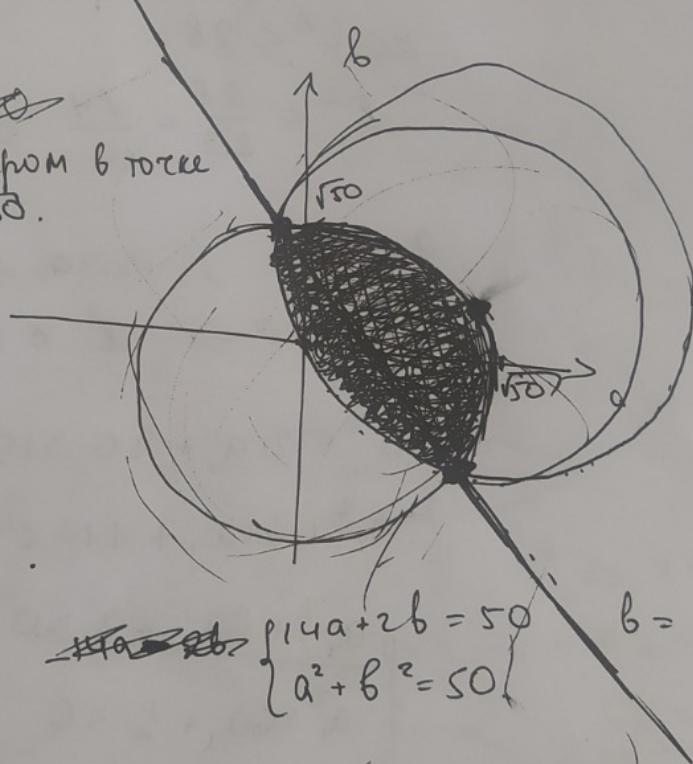 b
ром в точке
√50
√50
a
{14a+2b=50
b=
{a²+b²=50